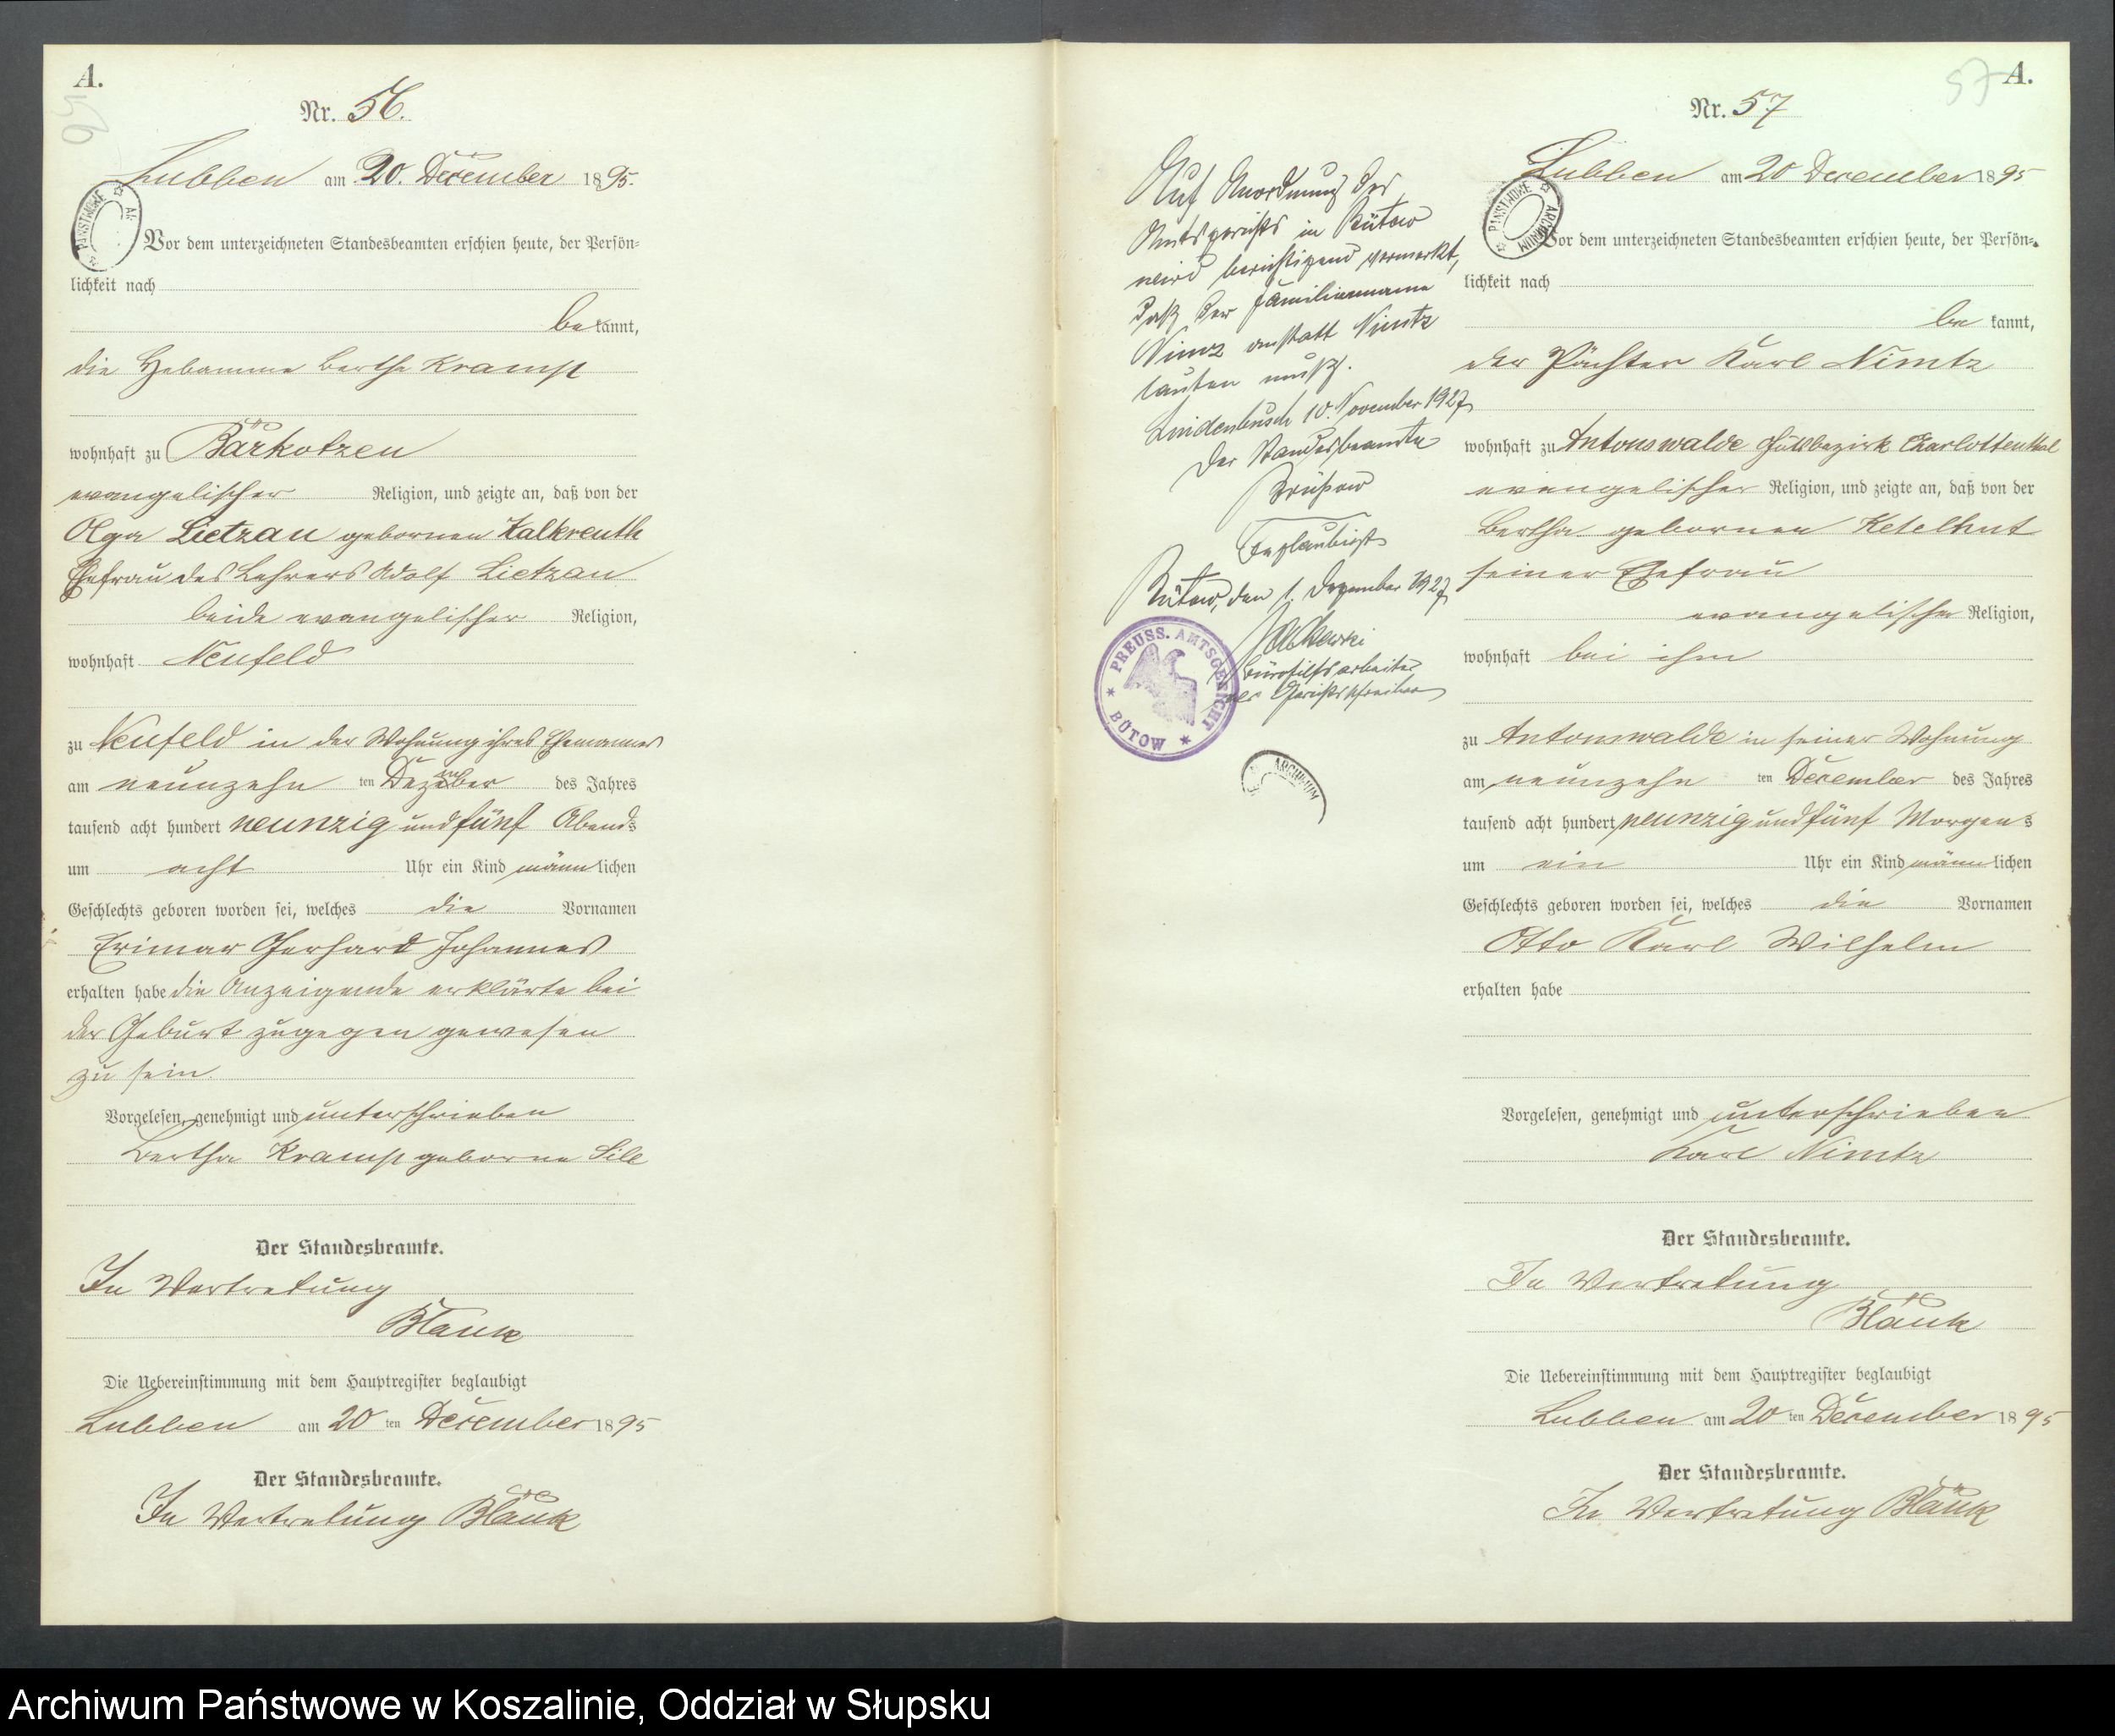 A.
56
Nr. 56.
Lubben am 20. December 1895.
PANSTWOWE AR
Vor dem unterzeichneten Standesbeamten erschien heute, der Persön=
lichkeit nach
bekannt,
die Hebamme Berthe Kramp
wohnhaft zu Bärkotzen
evangelischer Religion, und zeigte an, daß von der
Olga Lietzau gebornen Kalkreuth
Ehefrau des Lehrers Adolf Lietzau
beide evangelischer Religion,
wohnhaft Neufeld
zu Neufeld in der Wohnung ihres Ehemannes
am neunzehn ten Dezember des Jahres
tausend acht hundert neunzig und fünf Abends
um acht Uhr ein Kind männlichen
Geschlechts geboren worden sei, welches die Vornamen
Erimar Gerhard Johannes
erhalten habe die Anzeigende erklärte bei
der Geburt zugegen gewesen
zu sein.
Vorgelesen, genehmigt und unterschrieben
Bertha Kramp geborene Sill
Der Standesbeamte.
In Vertretung
Blauk
Die Uebereinstimmung mit dem Hauptregister beglaubigt
Lubben am 20 ten December 1895
Der Standesbeamte.
In Vertretung Blauk
Auf Anordnung des
Amtsgerichts in Bütow
wird berichtigend vermerkt,
daß der Familienname
Nimz anstatt Nimtz
lauten muß.
Lindenbusch 10. November 1927
Der Standesbeamte
Beglaubigt
Bütow, den 1. Dezember 1927
Bürohilfsarbeiter
als Gerichtsschreiber
PREUSS. AMTSGERICHT BÜTOW
ARCHIWUM
57 A.
Nr. 57
Lubben am 20 December 1895
PANSTWOWE ARCHIWUM
Vor dem unterzeichneten Standesbeamten erschien heute, der Persön=
lichkeit nach
be kannt,
der Pächter Karl Nimtz
wohnhaft zu Antonswalde Gutsbezirk Charlottenthal
evangelischer Religion, und zeigte an, daß von der
Bertha gebornen Ketelhut
seiner Ehefrau
evangelischer Religion,
wohnhaft bei ihm
zu Antonswalde in seiner Wohnung
am neunzehn ten December des Jahres
tausend acht hundert neunzig und fünf Morgens
um ein Uhr ein Kind männlichen
Geschlechts geboren worden sei, welches die Vornamen
Otto Karl Wilhelm
erhalten habe
Vorgelesen, genehmigt und unterschrieben
Karl Nimtz
Der Standesbeamte.
In Vertretung
Blauk
Die Uebereinstimmung mit dem Hauptregister beglaubigt
Lubben am 20 ten December 1895
Der Standesbeamte.
In Vertretung Blauk
Archiwum Państwowe w Koszalinie, Oddział w Słupsku